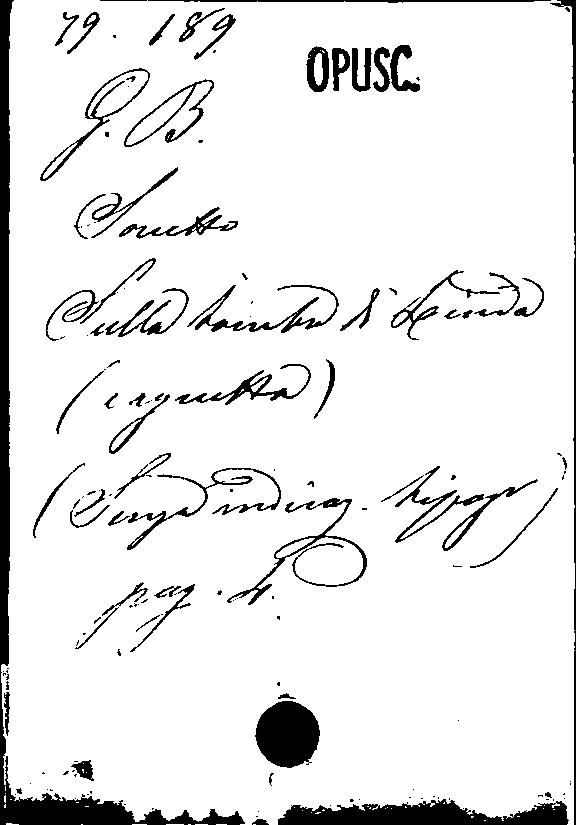 79. 189
OPUSC.
G. B.
Sonetto
Sulla tomba di Linda
(cagnetta)
(Senza indicaz. tipogr)
pag. 4.